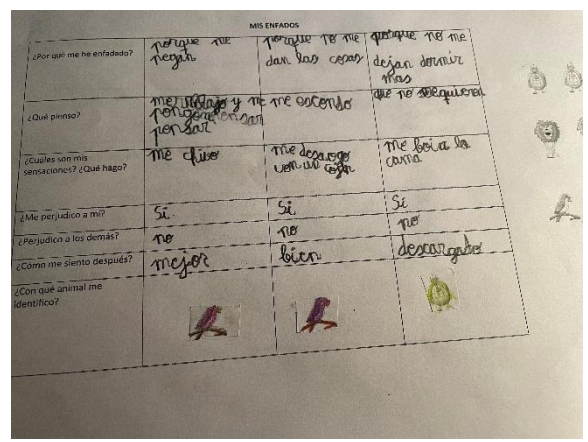 MIS ENFADOS
¿Por qué me he enfadado?
porque me
pegan
porque no me
dan las cosas
porque no me
dejan dormir
mas
¿Qué pienso?
me relajo y me
pongo
pensar
me escondo
que no me quieren
¿Cuáles son mis
sensaciones? ¿Qué hago?
me chivo
me desaogo
con un cojin
me boi a la
cama
¿Me perjudico a mí?
Si
Si
Si
¿Perjudico a los demás?
no
no
no
¿Cómo me siento después?
mejor
bien
descargado
¿Con qué animal me
identifico?